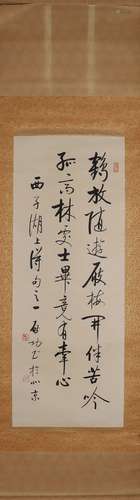 鹤放随游屐梅开伴苦吟
孤高林处士毕竟有牵心
西子湖上得句之一启功书于北京